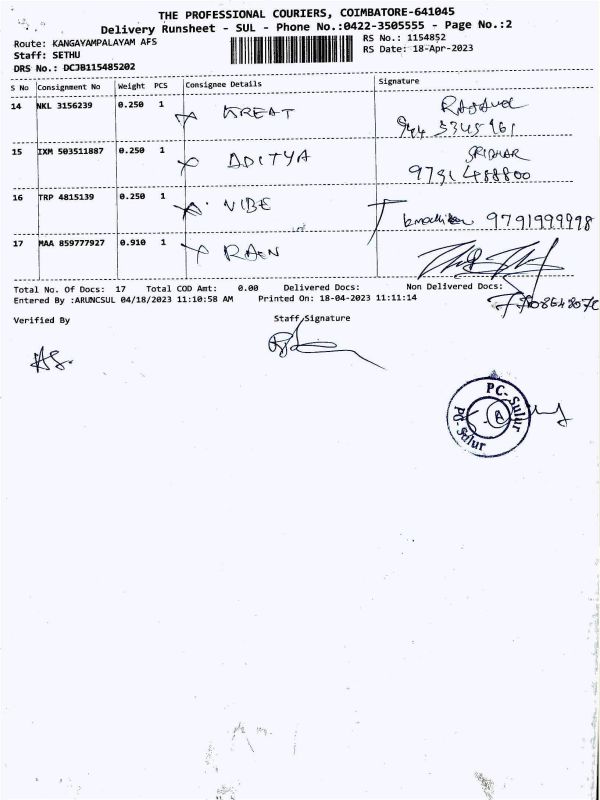 THE PROFESSIONAL COURIERS, COIMBATORE-641045
Delivery Runsheet - SUL - Phone No.:0422-3505555 - Page No.:2
Route: KANGAYAMPALAYAM AFS
RS No.: 1154852
Staff: SETHU
RS Date: 18-Apr-2023
DRS No.: DCJB115485202
S No Consignment No Weight PCS Consignee Details Signature
14 NKL 3156239 0.250 1 KREAT
15 IXM 503511887 0.250 1 ADITYA SRIDHAR
9791488800
16 TRP 4815139 0.250 1 VIBE 9791999998
17 MAA 859777927 0.910 1 RAEN
Total No. Of Docs: 17 Total COD Amt: 0.00 Delivered Docs: Non Delivered Docs:
Entered By :ARUNCSUL 04/18/2023 11:10:58 AM Printed On: 18-04-2023 11:11:14
Verified By Staff Signature
PC- Sulur
PC- Sulur